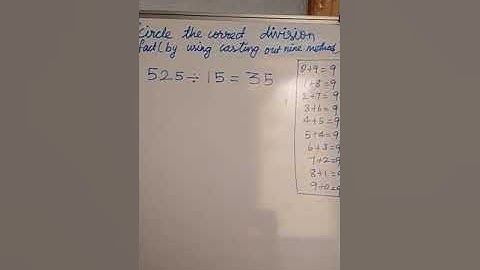 Circle the correct division
fact (by using casting out nine method
525 ÷ 15 = 35
0+9=9
1+8=9
2+7=9
3+6=9
4+5=9
5+4=9
6+3=9
7+2=9
8+1=9
9+0=9